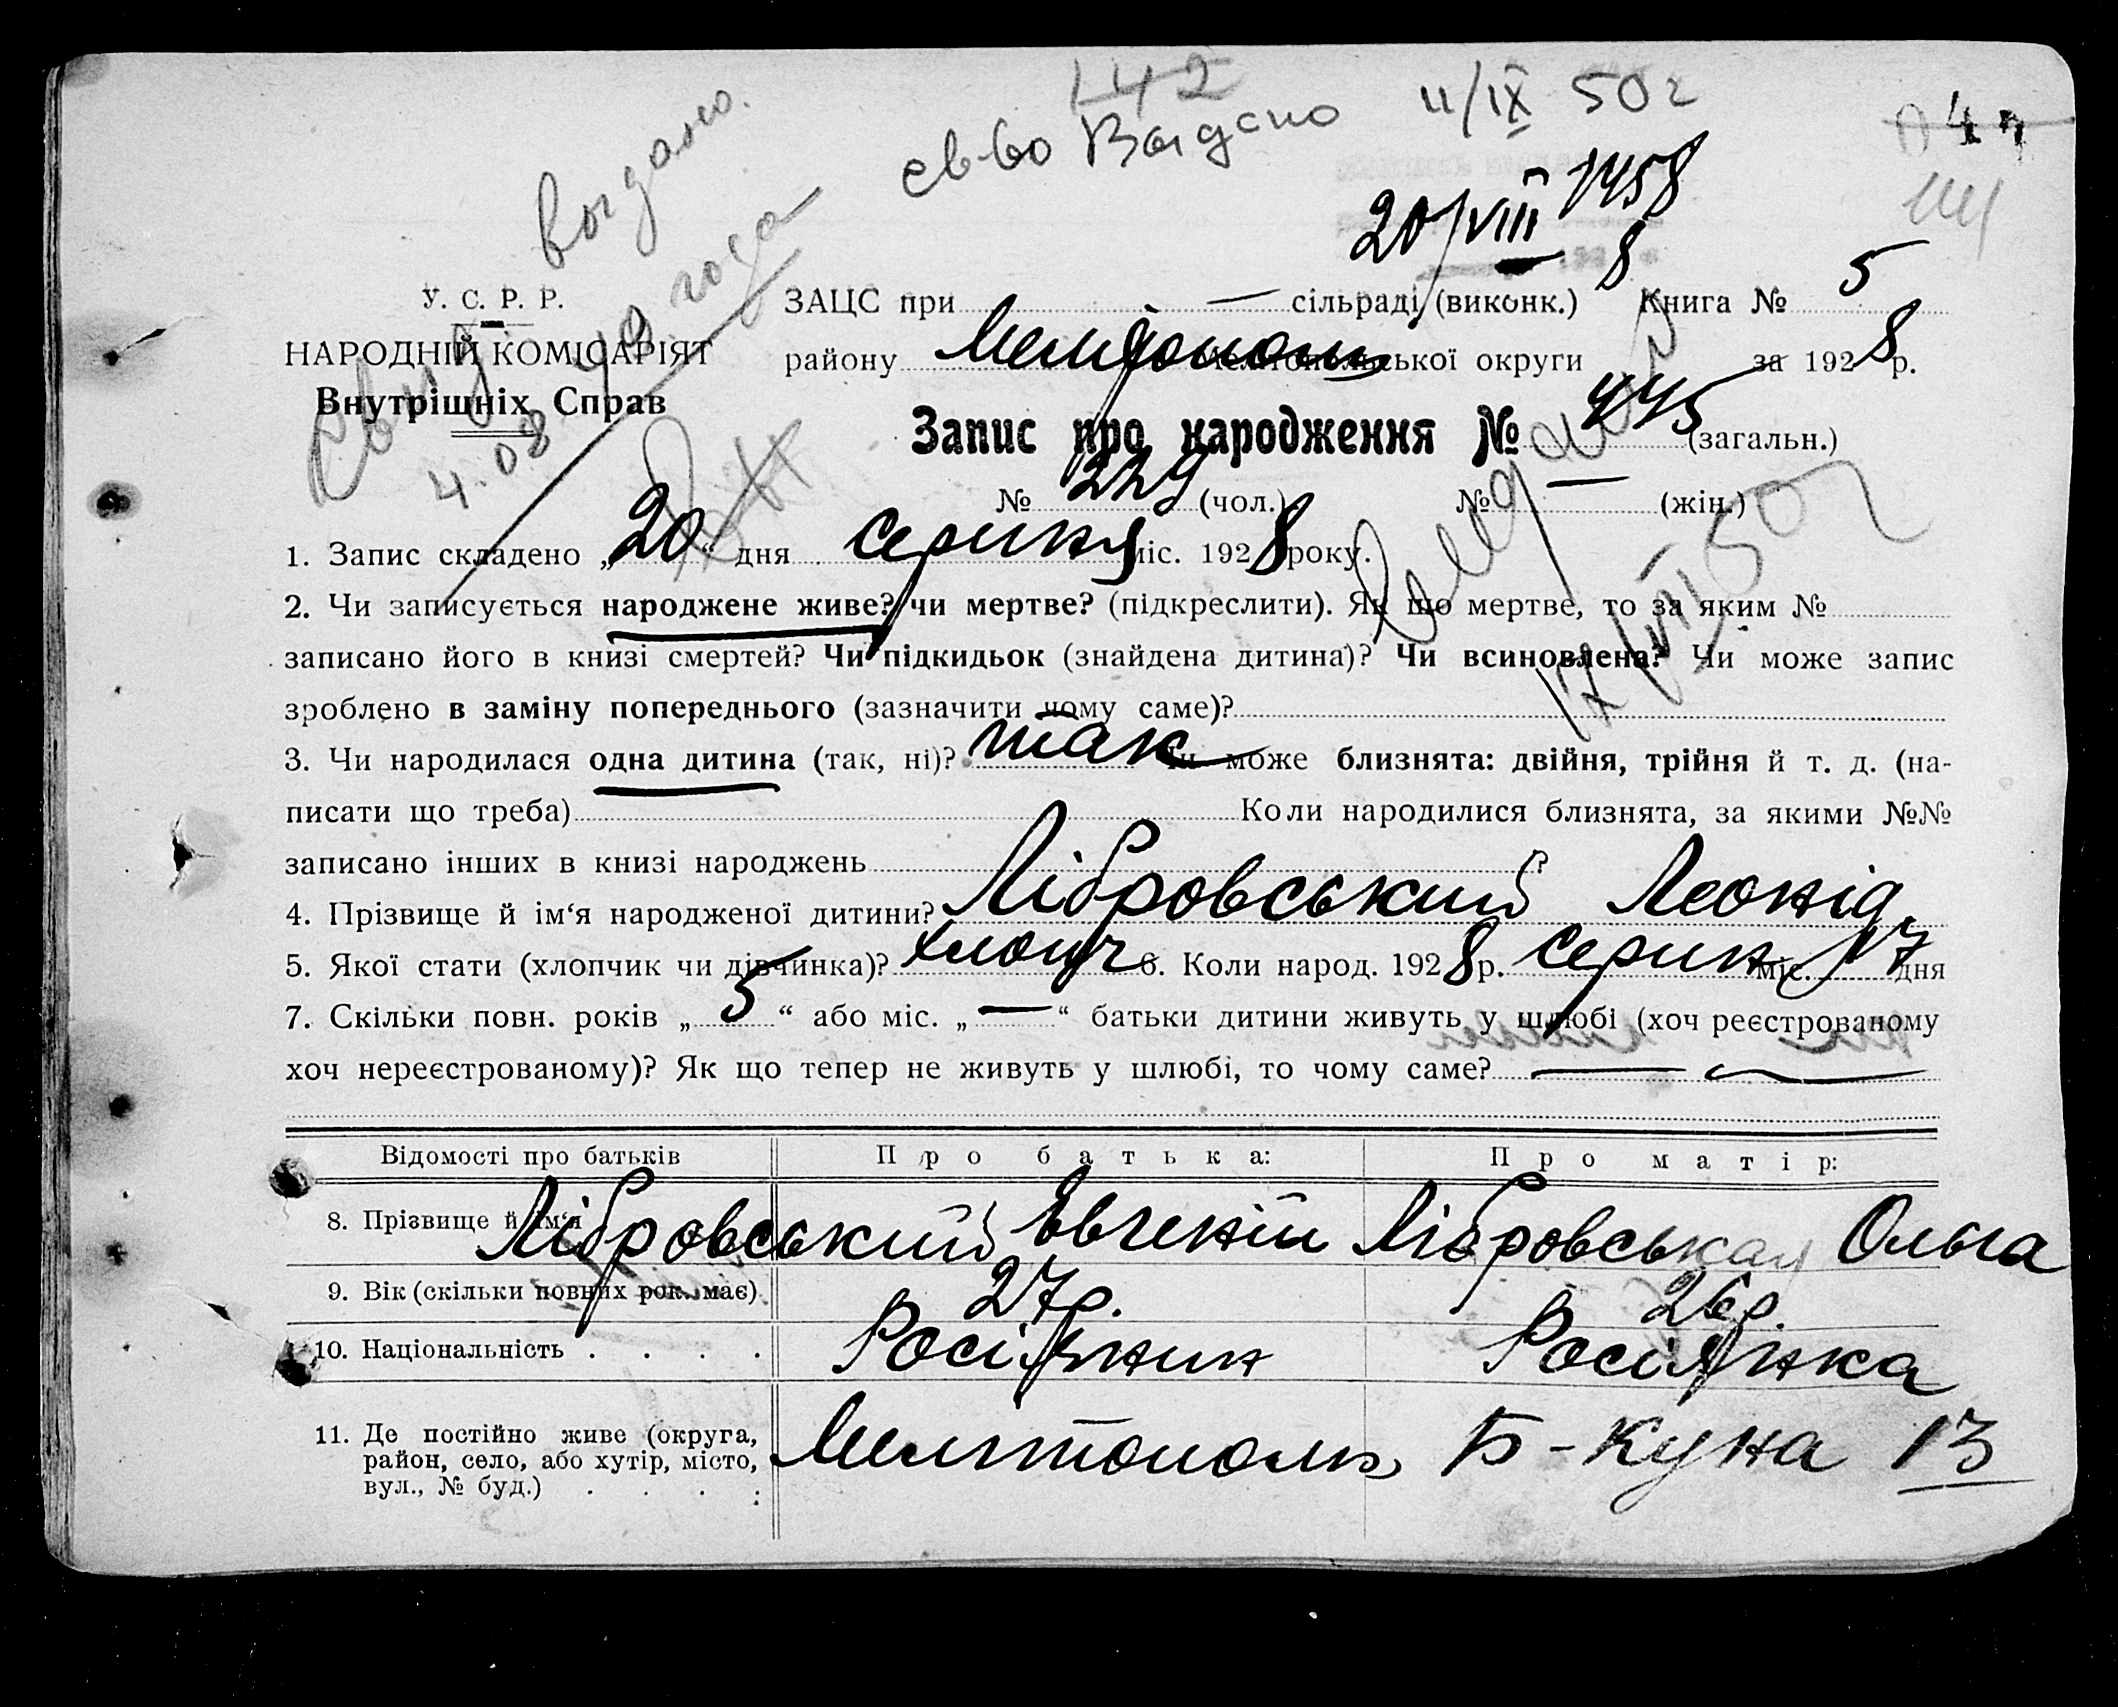 142
св-во Выдано 11/IX 50 г
выдано.
20/VIII 1958
У. С. Р. Р.
НАРОДНІЙ КОМІСАРІЯТ
Внутрішніх Справ
4.08 49 года
ЗАЦС при — сільраді, (виконк.) Книга № 5
району Мелітополь Мелітопольської округи за 1928 р.
Запис про народження № 445 (загальн.)
№ 229 (чол.) № — (жін.)
17/VII 50 г
1. Запис складено „20“ дня серпня міс. 1928 року.
2. Чи записується народжене живе? чи мертве? (підкреслити). Як що мертве, то за яким №
записано його в книзі смертей? Чи підкидьок (знайдена дитина)? Чи всиновлена? Чи може запис
зроблено в заміну попереднього (зазначити чому саме)?
3. Чи народилася одна дитина (так, ні)? так Чи може близнята: двійня, трійня й т. д. (на-
писати що треба) Коли народилися близнята, за якими №№
записано інших в книзі народжень ?
4. Прізвище й ім‘я народженої дитини? Лібровський Леонід
5. Якої стати (хлопчик чи дівчинка)? хлопч 6. Коли народ. 1928 р. серпн міс. 17 дня
7. Скільки повн. років „5“ або міс. „—“ батьки дитини живуть у шлюбі (хоч реєстрованому
хоч нереєстрованому)? Як що тепер не живуть у шлюбі, то чому саме? — —
Відомості про батьків Про батька: Про матір:
8. Прізвище й ім‘я Лібровський Євгеній Лібровськая Ольга
9. Вік (скільки повних рок. має) 27 р. 26 р.
10. Національність . . . . Росіянин Росіянка
11. Де постійно живе (округа,
район, село, або хутір, місто,
вул., № буд.) . . . . Мелітополь Б-Куна 13